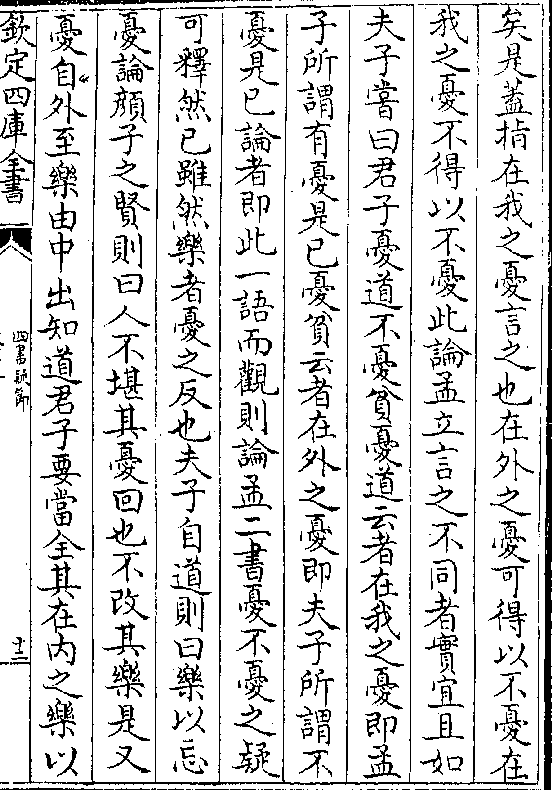 矣是蓋指在我之憂言之也在外之憂可得以不憂在
我之憂不得以不憂此論孟立言之不同者實宜且如
夫子嘗曰君子憂道不憂貧憂道云者在我之憂即孟
子所謂有憂是已憂貧云者在外之憂即夫子所謂不
憂是已論者即此一語而觀則論孟二書憂不憂之疑
可釋然已雖然樂者憂之反也夫子自道則曰樂以忘
憂論顔子之賢則曰人不堪其憂回也不改其樂是又
憂自外至樂由中出知道君子要當全其在内之樂以
欽定四庫全書
四書疑節
十二